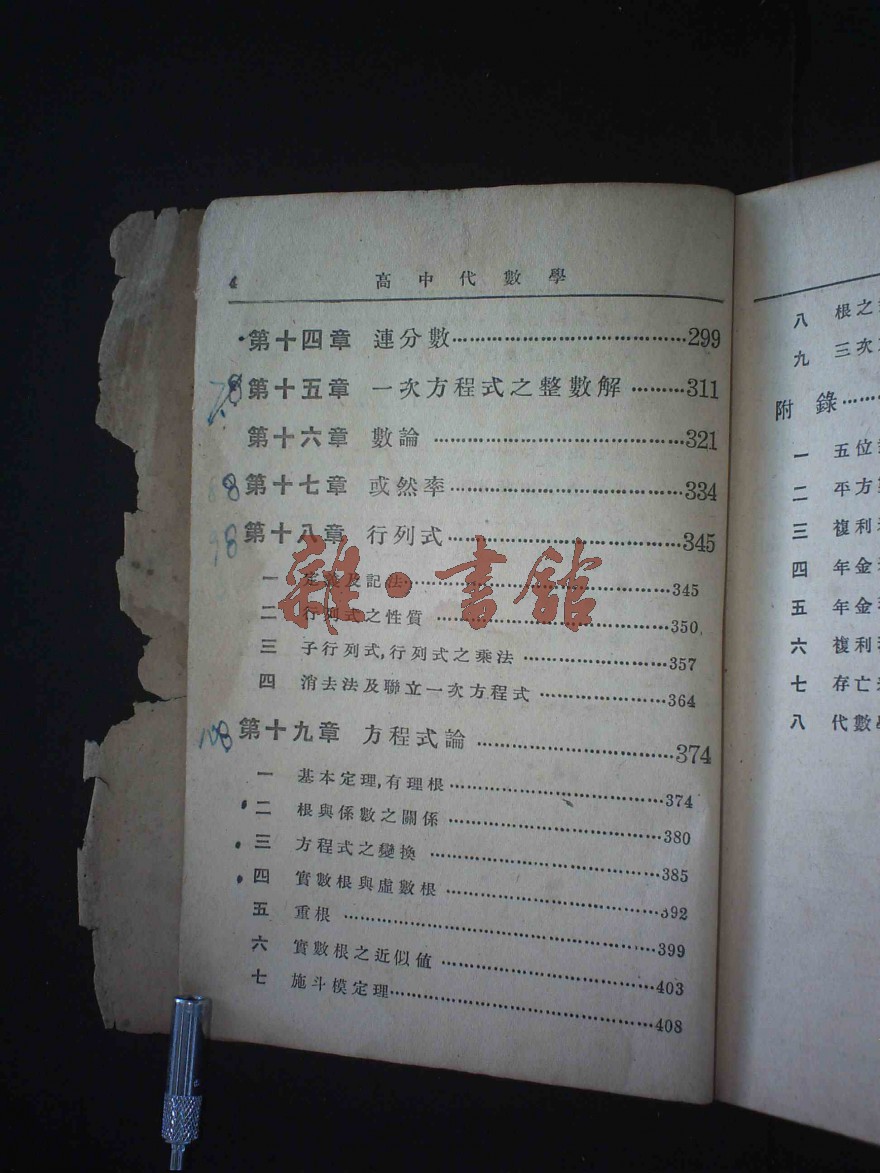 4 高中代數學
第十四章 連分數……299
第十五章 一次方程式之整數解……311
第十六章 數論……321
第十七章 或然率……334
第十八章 行列式……345
一 定義及記法……345
二 行列式之性質……350
三 子行列式,行列式之乘法……357
四 消去法及聯立一次方程式……364
第十九章 方程式論……374
一 基本定理,有理根……374
二 根與係數之關係……380
三 方程式之變換……385
四 實數根與虛數根……392
五 重根……399
六 實數根之近似值……403
七 施斗模定理……408
雜·書館
八 根之
九 三次
附錄……
一 五位
二 平方
三 複利
四 年金
五 年金
六 複利
七 存亡
八 代數